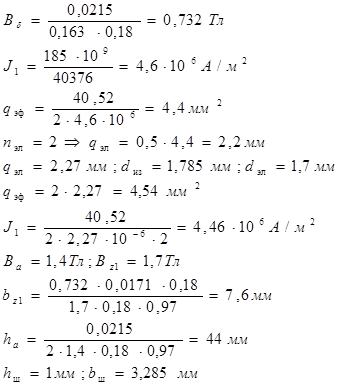 B_δ = 0,0215 / (0,163 · 0,18) = 0,732 Тл
J_1 = 185 · 10^9 / 40376 = 4,6 · 10^6 А / м^2
q_эф = 40,52 / (2 · 4,6 · 10^6) = 4,4 мм^2
n_эл = 2 ⇒ q_эл = 0,5 · 4,4 = 2,2 мм
q_эл = 2,27 мм ; d_из = 1,785 мм ; d_эл = 1,7 мм
q_эф = 2 · 2,27 = 4,54 мм^2
J_1 = 40,52 / (2 · 2,27 · 10^-6 · 2) = 4,46 · 10^6 А / м^2
B_a = 1,4 Тл ; B_z1 = 1,7 Тл
b_z1 = 0,732 · 0,0171 · 0,18 / (1,7 · 0,18 · 0,97) = 7,6 мм
h_a = 0,0215 / (2 · 1,4 · 0,18 · 0,97) = 44 мм
h_ш = 1 мм ; b_ш = 3,285 мм